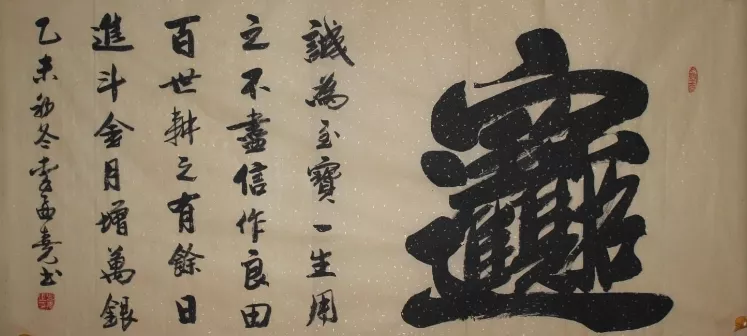 招財進寶
誠為至寶一生用
之不盡信作良田
百世耕之有餘日
進斗金月增萬銀
乙未初冬李西堯书